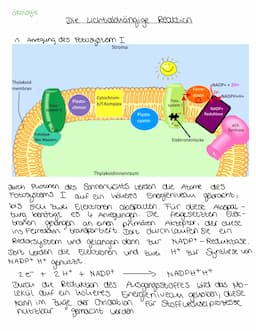 Ökologie
Die Lichtabhängige Reaktion
1. Anregung des Fotosystem I
Stroma
Thylakoid
membran
Plasto-
chinon
Cytochrom-
b/f Komplex
Plasto-
cyanin
NADP+
Reduktase
Elektronenlücke
Thylakoidinnenraum
durch Photonen des Sonnenlichts werden die Atome des
Fotosystems I auf ein höheres Energieniveau gebracht,
bis sich zwei Elektronen abspalten. Für diese Abspal-
tung benötigt es 4 Anregungen. Die freigesetzten Elek-
tronen gelangen an einen primären Akzeptor, der diese
ins Ferredoxin transportiert. Dort durchlaufen sie ein
Redoxsystem und gelangen dann zur NADP+-Reduktase.
Dort werden die Elektronen und zwei H+ zur Synthese von
NADPH H+ genutzt.
2e- + 2H+ + NADP+ → NADPH+H+
Durch die Reduktion des Ausgangsstoffes wird das Mo-
lekül auf ein höheres Energieniveau gehoben, diese
kann im Zuge der Oxidation für Stoffwechselprozesse
nutzbar gemacht werden.